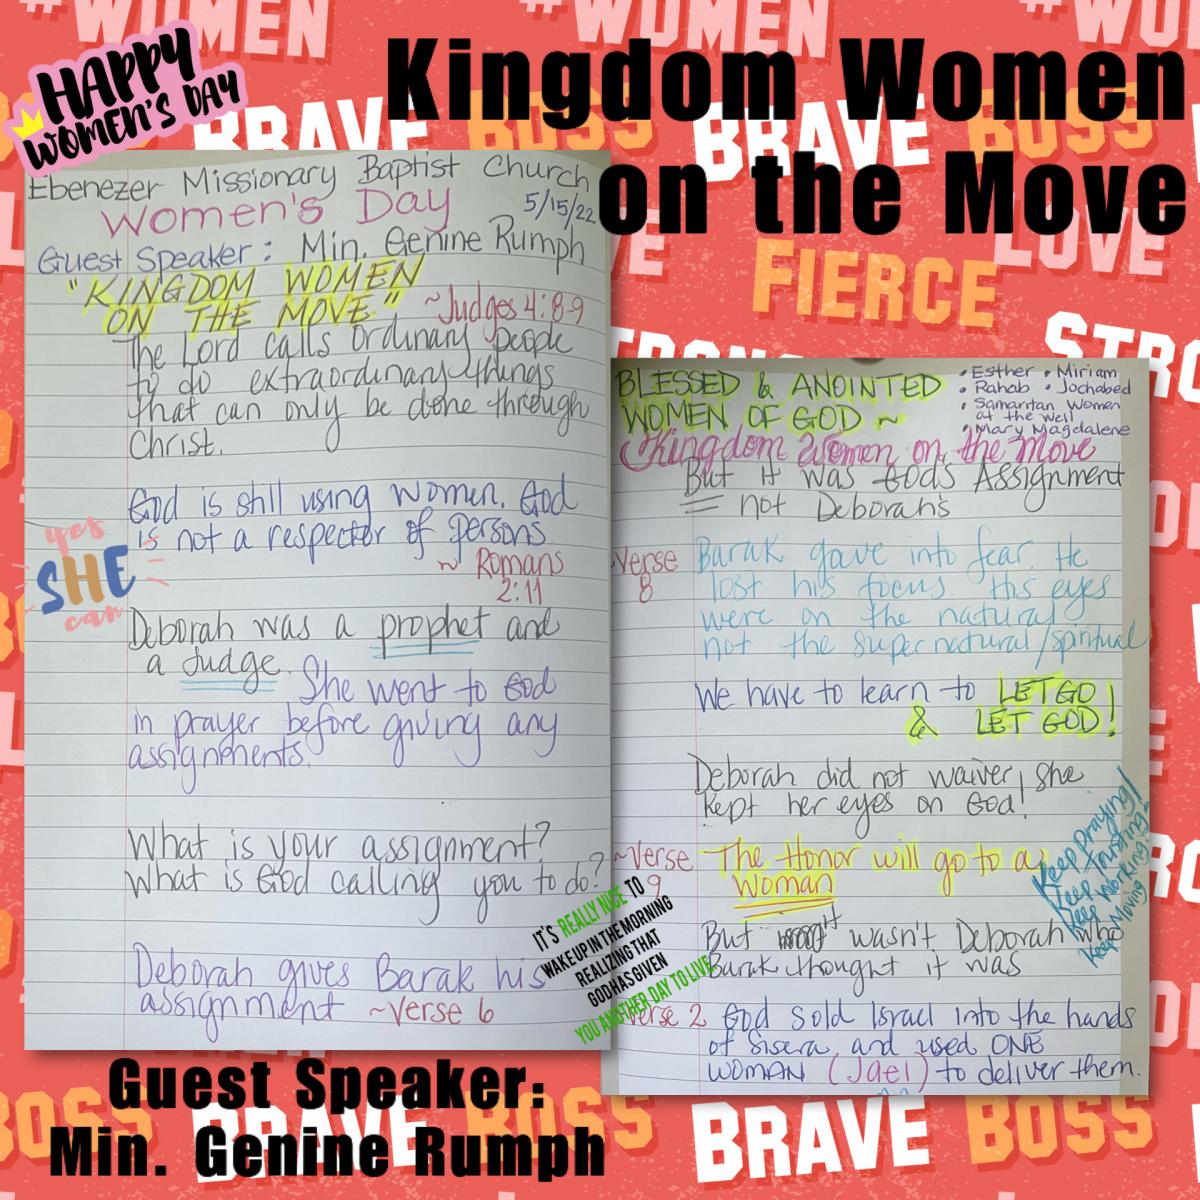 #WOMEN
#WOMEN
#WO
HAPPY
WOMEN'S DAY
Kingdom Women
on the Move
BRAVE BOSS BRAVE BOSS
LOVE
FIERCE
STRO
Ebenezer Missionary Baptist Church
Women's Day 5/15/22
Guest Speaker: Min. Genine Rumph
"KINGDOM WOMEN
ON THE MOVE" ~Judges 4:8-9
The Lord calls ordinary people
to do extraordinary things
that can only be done through
Christ.
God is still using women. God
is not a respector of persons.
~ Romans
2:11
yes
SHE
can
Deborah was a prophet and
a Judge. She went to God
in prayer before giving any
assignments.
What is your assignment?
What is God calling you to do?
Deborah gives Barak his
assignment ~Verse 6
IT'S REALLY NICE TO
WAKE UP IN THE MORNING
REALIZING THAT
GOD HAS GIVEN
YOU ANOTHER DAY TO LIVE
BLESSED & ANOINTED
WOMEN OF GOD ~
• Esther • Miriam
• Rahab • Jochabed
• Samaritan Women
at the Well
• Mary Magdalene
Kingdom Women on the Move
But it was God's Assignment
not Deborah's
Verse 8
Barak gave into fear. He
lost his focus. His eyes
were on the natural
not the supernatural/spiritual
We have to learn to LET GO
& LET GOD!
Deborah did not waiver, she
kept her eyes on God!
~Verse 9
The Honor will go to a
Woman
Keep Praying!
Keep Trusting!
Keep Working!
Keep Moving
But it wasn't Deborah who
Barak thought it was
Verse 2 God sold Israel into the hands
of Sisera and used ONE
WOMAN (Jael) to deliver them.
Guest Speaker:
Min. Genine Rumph
BOSS BRAVE BOSS BRAVE BOSS